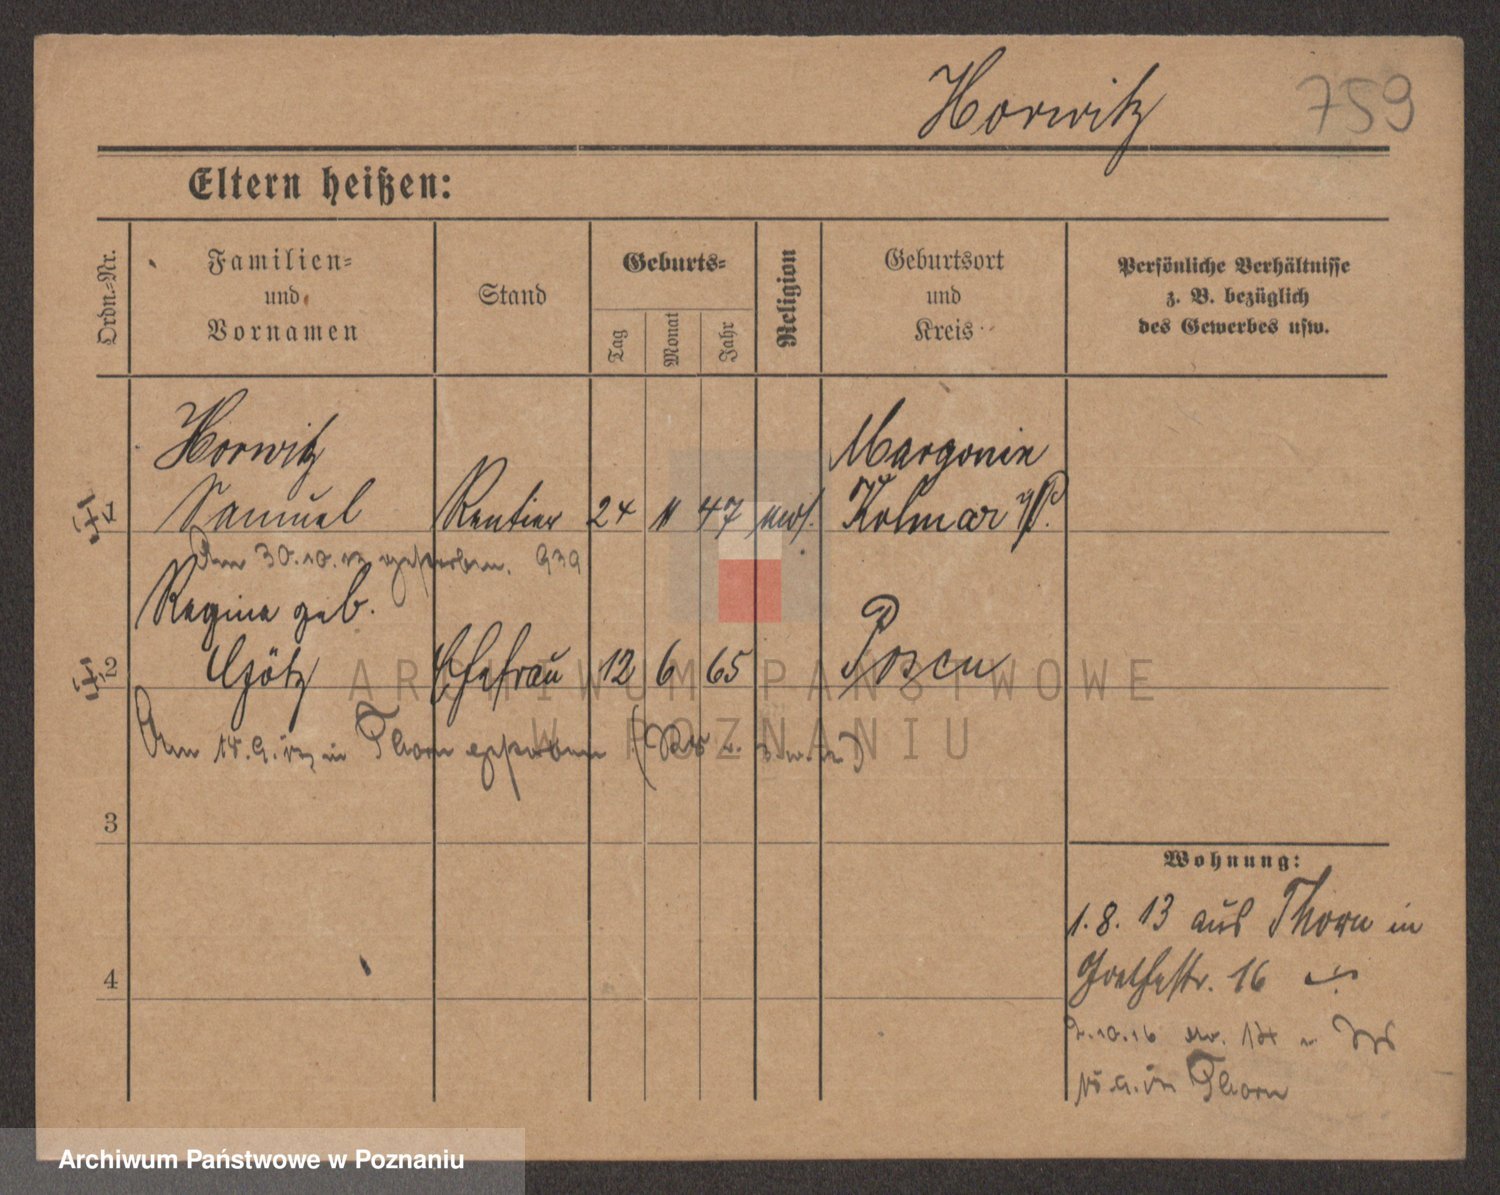 Horwitz 759
Eltern heißen:
Ordn.=Nr.
Familien=
und
Vornamen
Stand
Geburts=
Tag
Monat
Jahr
Religion
Geburtsort
und
Kreis
Persönliche Verhältnisse
z. B. bezüglich
des Gewerbes usw.
Horwitz Margonin
1 Samuel Rentier 24 11 47 mos. Kolmar i/P.
Am 30.10. gestorben. 939
Regine geb.
2 Götz Ehefrau 12 6 65 Posen
Am in Thorn gestorben
3
Wohnung:
1.8.13 aus Thorn in
Goethestr. 16
4
2.10.16
Thorn
ARCHIWUM PAŃSTWOWE
W POZNANIU
Archiwum Państwowe w Poznaniu